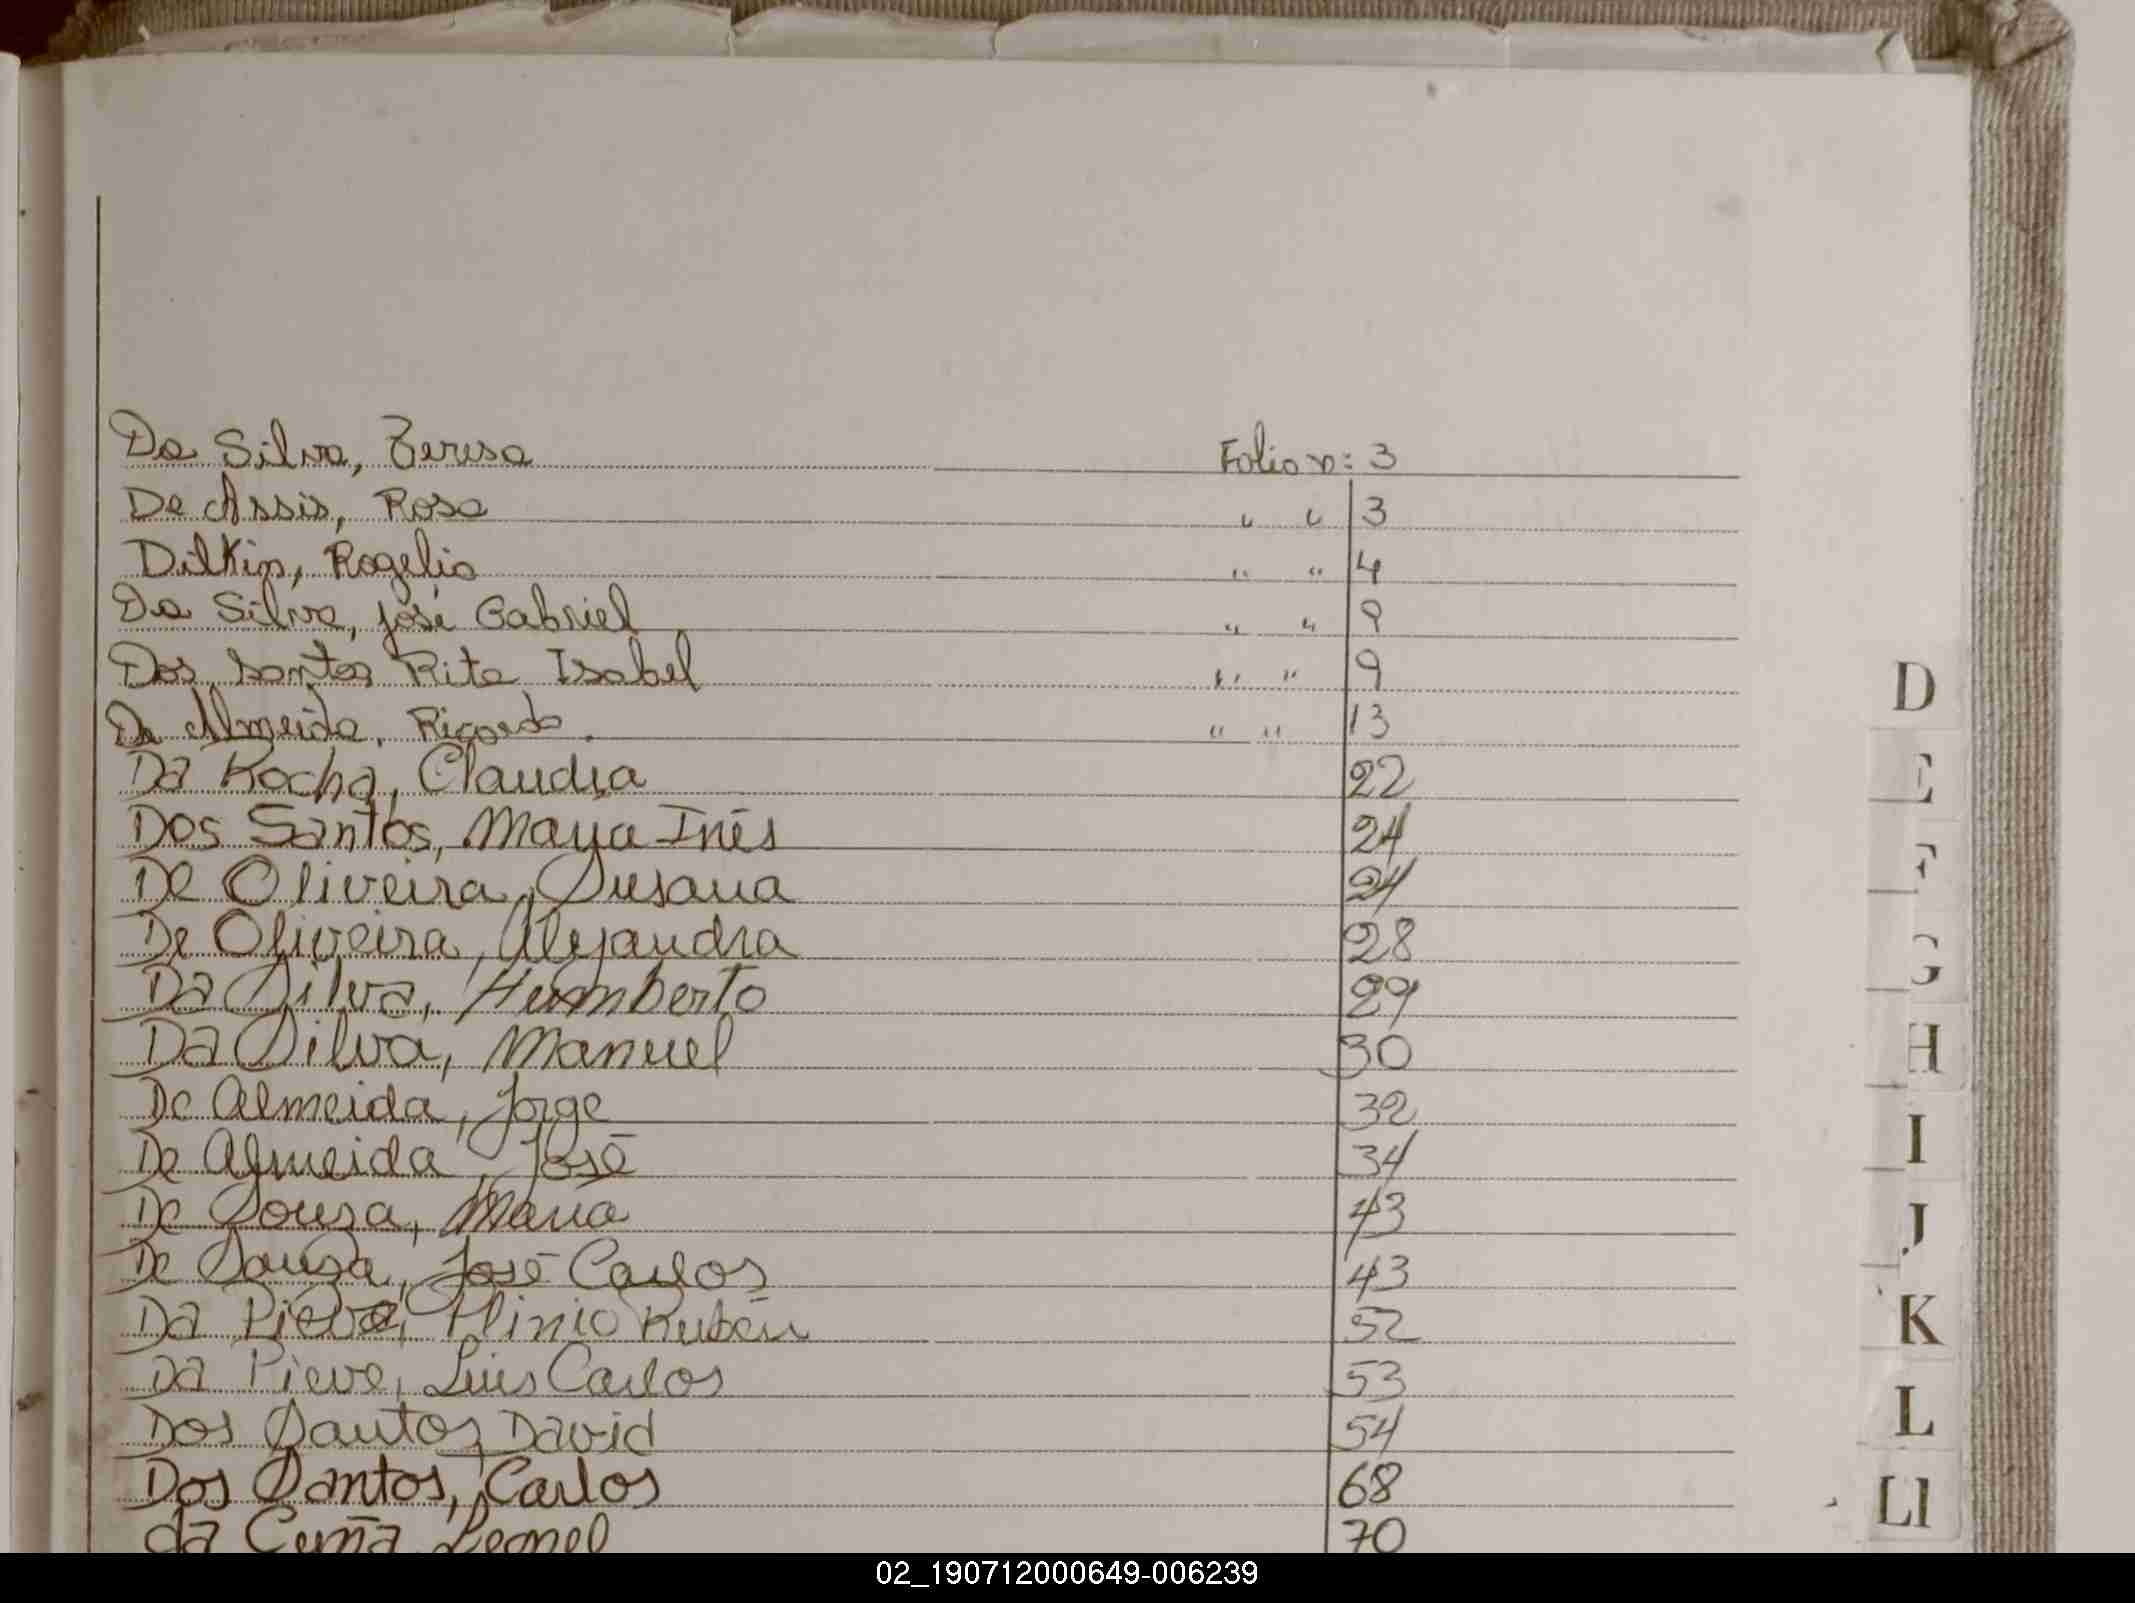 Da Silva, Teresa Folio n: 3
De Assis, Rosa " " 3
Dilkin, Rogelio " " 4
Da Silva, José Gabriel " " 9
Dos Santos Rita Isabel " " 9
De Almeida, Ricardo. " " 13
Da Rocha, Claudia 22
Dos Santos, Maria Inés 24
De Oliveira, Susana 24
De Oliveira, Alejandra 28
Da Silva, Humberto 29
Da Silva, Manuel 30
De Almeida, Jorge 32
De Almeida, José 34
De Souza, Maria 43
De Souza, José Carlos 43
Da Pieve, Plinio Rubén 52
Da Pieve, Luis Carlos 53
Dos Santos, David 54
Dos Santos, Carlos 68
da Cuña Leonel 70
D
E
F
G
H
I
J
K
L
Ll
02_190712000649-006239